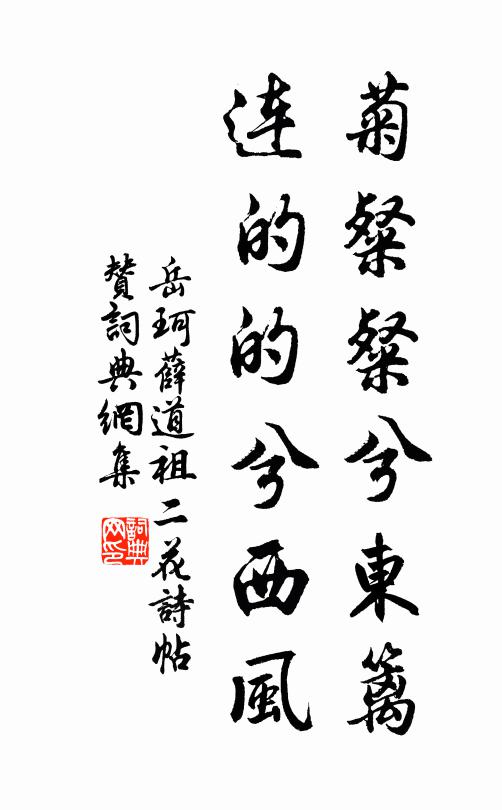 菊粲粲兮東籬
連的的兮西風
岳珂薛道祖二花詩帖
贊詞典網集
詞典网印